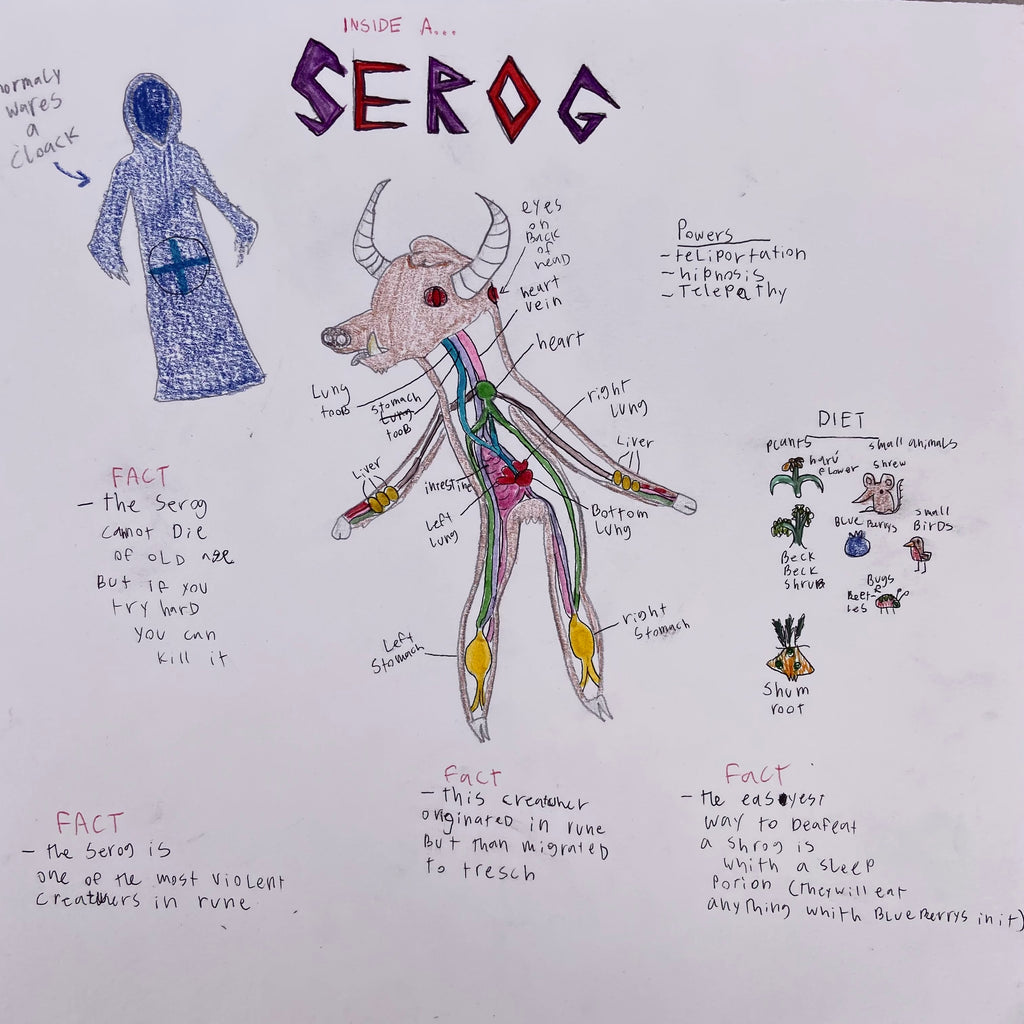 INSIDE A...
SEROG
normaly
wares
a
cloack
eyes
on
Back
of
head
heart
vein
heart
Powers
-teliportation
-hipnosis
-Telepathy
Lung
tooB
stomach
Lung
tooB
right
Lung
Liver
Liver
intestine
Left
Lung
Bottom
Lung
Left
Stomach
right
Stomach
DIET
Plants
small animals
haru
flower
shrew
Blue Berrys
small
BirDs
Beck
Beck
shruB
Bugs
&
Beet-
les
Shum
root
FACT
- the Serog
cannot Die
of OLD age
But if you
try hard
you can
kill it
FACT
- the Serog is
one of the most violent
creatuers in rune
Fact
- this creatuer
originated in rune
But than migrated
to tresch
Fact
- the easyest
way to Deafeat
a shrog is
whith a sleep
Porion (they will eat
anything whith BlueBerrys in it)